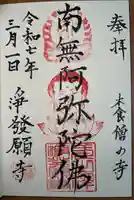 奉拝
木食僧の寺
南無阿弥陀佛
令和七年
三月二日
浄發願寺